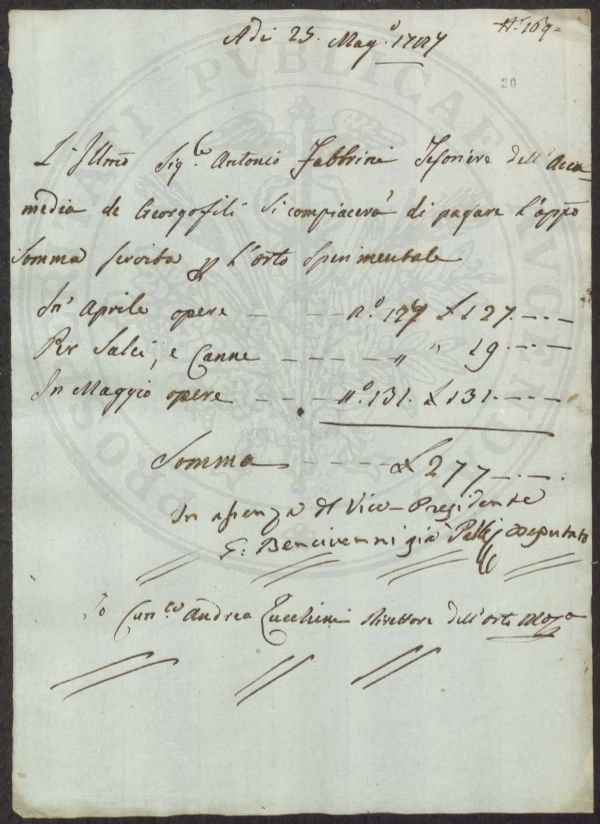 Adi 25. Mag.º 1787
N.º 169=
20
L'Illmo Sig.re Antonio Fabbrini Tesoriere dell'Acca=
media de Georgofili si compiacerà di pagare l'appo
Somma servita p l'orto Sperimentale
In Aprile opere — — — n.º 127 £ 127.—.—
Per Salci, e Canne — — — — " " 19.—.—
In Maggio opere — — — n.º 131. £ 131.—.—
Somma — — — — £ 277.—.—
In assenza del Vice-Presidente
G: Bencivenni già Pelli Deputato
Io Can.co Andrea Zucchini Direttore dell'orto
PROSPERITATI PUBLICAE AUGENDAE